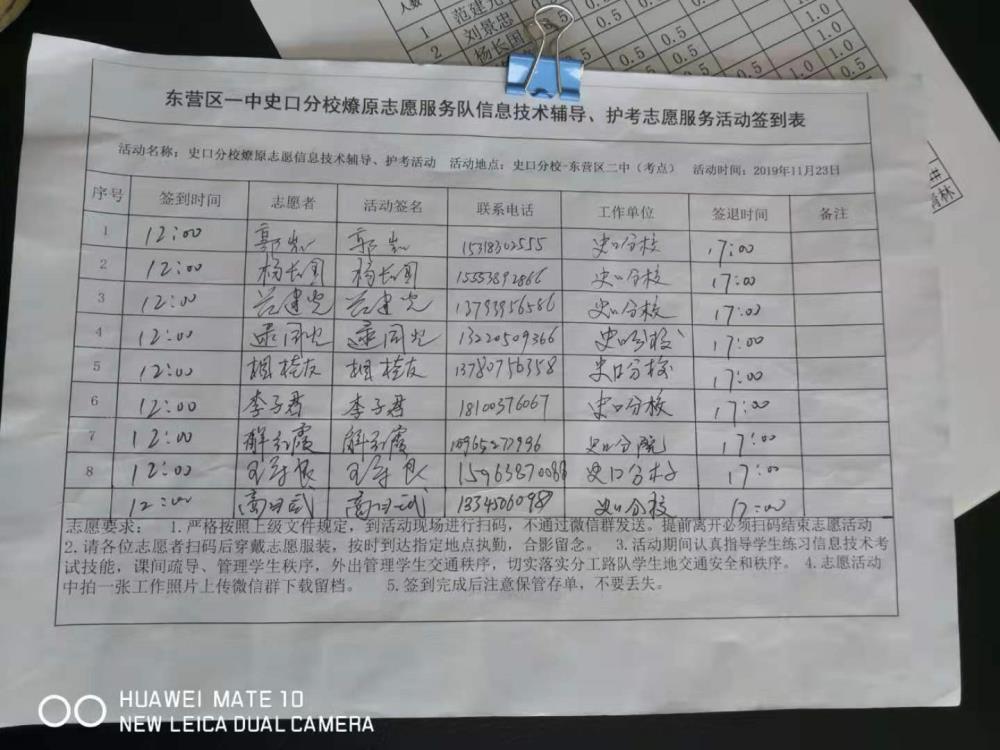 人数
1 范建光 0.5 0.5 0.5 1.0
2 刘景忠 0.5 0.5 1.0
杨长国 0.5 0.5 0.5
东营区一中史口分校燎原志愿服务队信息技术辅导、护考志愿服务活动签到表
活动名称：史口分校燎原志愿信息技术辅导、护考活动 活动地点：史口分校-东营区二中（考点） 活动时间：2019年11月23日
序号 签到时间 志愿者 活动签名 联系电话 工作单位 签退时间 备注
1 12:00 郭凯 郭凯 15318302555 史口分校 17:00
2 12:00 杨长国 杨长国 15553892866 史口分校 17:00
3 12:00 范建光 范建光 13793956586 史口分校 17:00
4 12:00 13220509366 史口分校 17:00
5 12:00 胡桂友 胡桂友 13780756358 史口分校 17:00
6 12:00 李子君 李子君 18100376067 史口分校 17:00
7 12:00 解红霞 解红霞 史口分院 17:00
8 12:00 史口分校 17:00
12:00 史口分校 17:00
志愿要求： 1.严格按照上级文件规定，到活动现场进行扫码，不通过微信群发送。提前离开必须扫码结束志愿活动
2.请各位志愿者扫码后穿戴志愿服装，按时到达指定地点执勤，合影留念。 3.活动期间认真指导学生练习信息技术考
试技能，课间疏导、管理学生秩序，外出管理学生交通秩序，切实落实分工路队学生地交通安全和秩序。 4.志愿活动
中拍一张工作照片上传微信群下载留档。 5.签到完成后注意保管存单，不要丢失。
HUAWEI MATE 10
NEW LEICA DUAL CAMERA